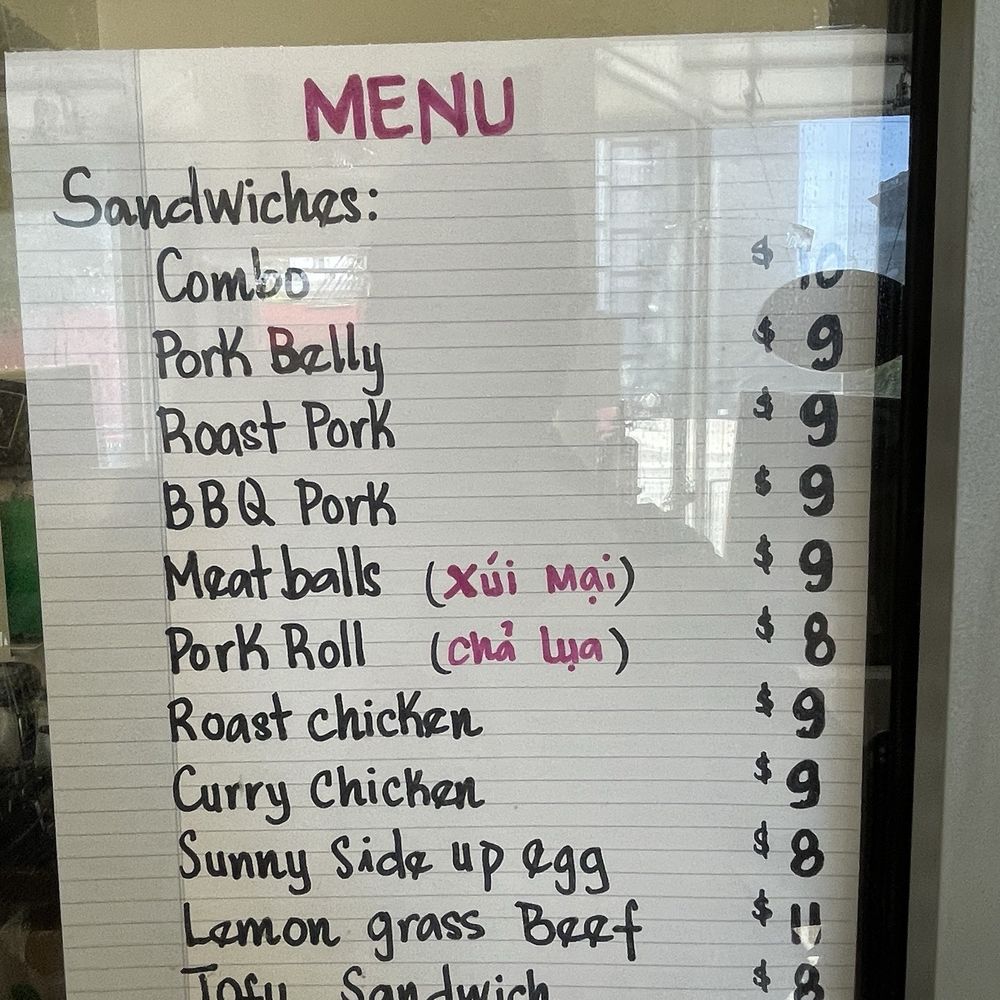 MENU
Sandwiches:
Combo $ 10
Pork Belly $ 9
Roast Pork $ 9
BBQ Pork $ 9
Meatballs (Xúi Mại) $ 9
Pork Roll (chả lụa) $ 8
Roast chicken $ 9
Curry chicken $ 9
Sunny Side up egg $ 8
Lemon grass Beef $ 11
Tofu Sandwich $ 8